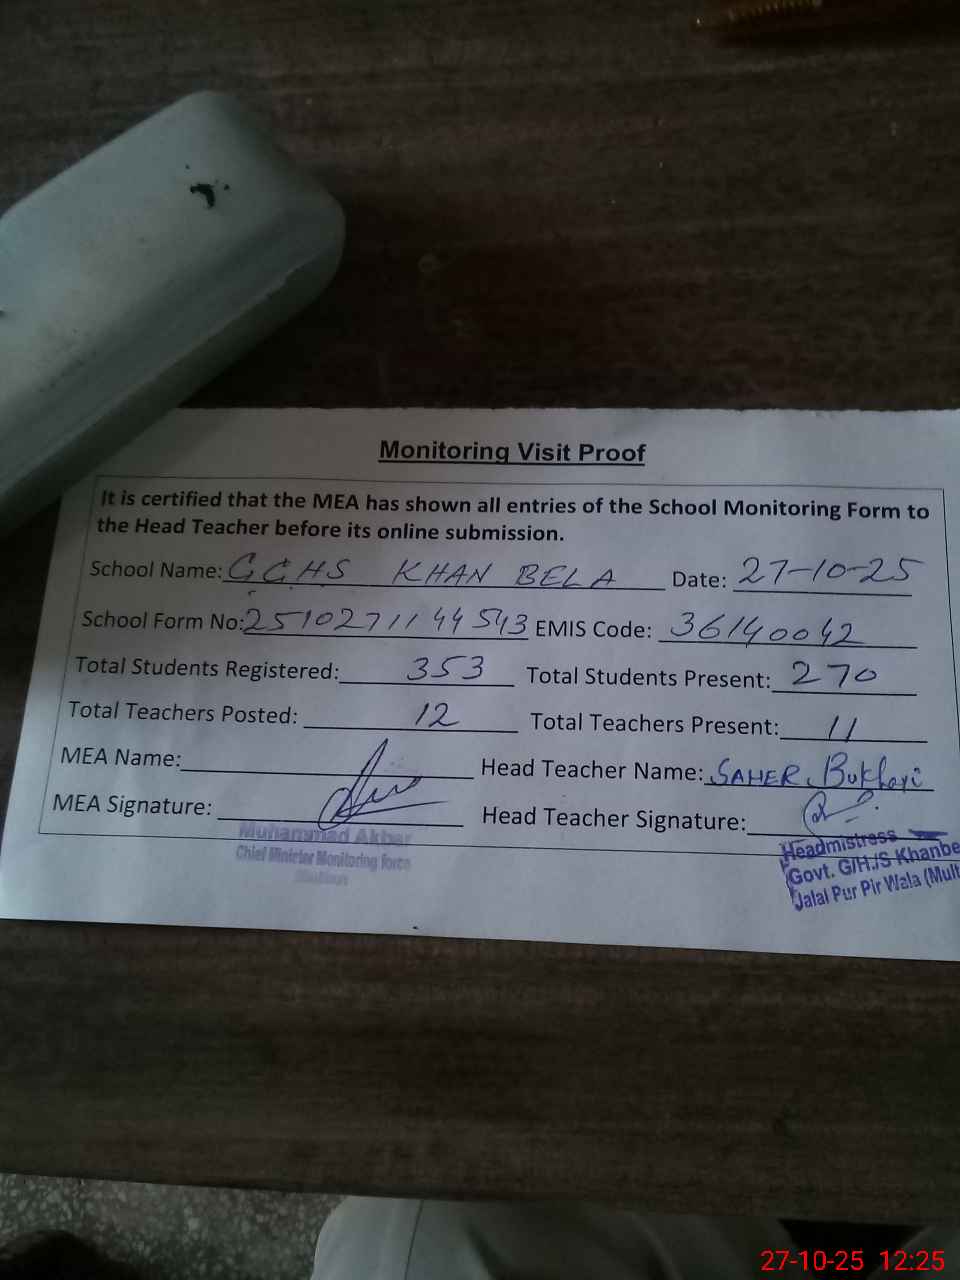 Monitoring Visit Proof
It is certified that the MEA has shown all entries of the School Monitoring Form to
the Head Teacher before its online submission.
School Name: G.G.H.S KHAN BELA Date: 27-10-25
School Form No: 2510271144543 EMIS Code: 36140042
Total Students Registered: 353 Total Students Present: 270
Total Teachers Posted: 12 Total Teachers Present: 11
MEA Name: Head Teacher Name: SAHER Bukhari
MEA Signature: Head Teacher Signature:
Muhammad Akbar
Chief Minister Monitoring Force
Headmistress
Govt. G/H./S Khanbe
Jalal Pur Pir Wala (Mult
27-10-25 12:25